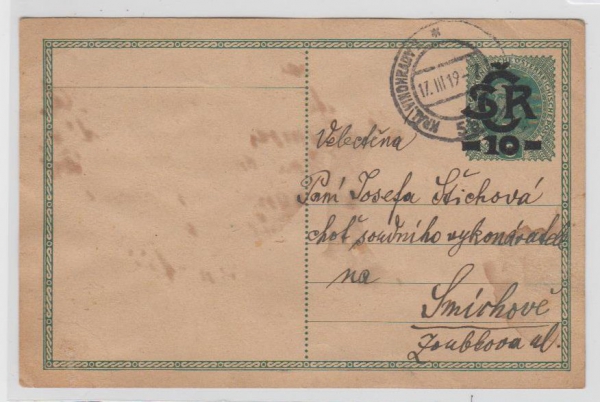 KRÁL. VINOHRADY
17. III 19
ČSR
-10-
Velectěna
Paní Josefa Šichová
choť soudního vykonavatele
na
Smíchově
Zoubkova ul.